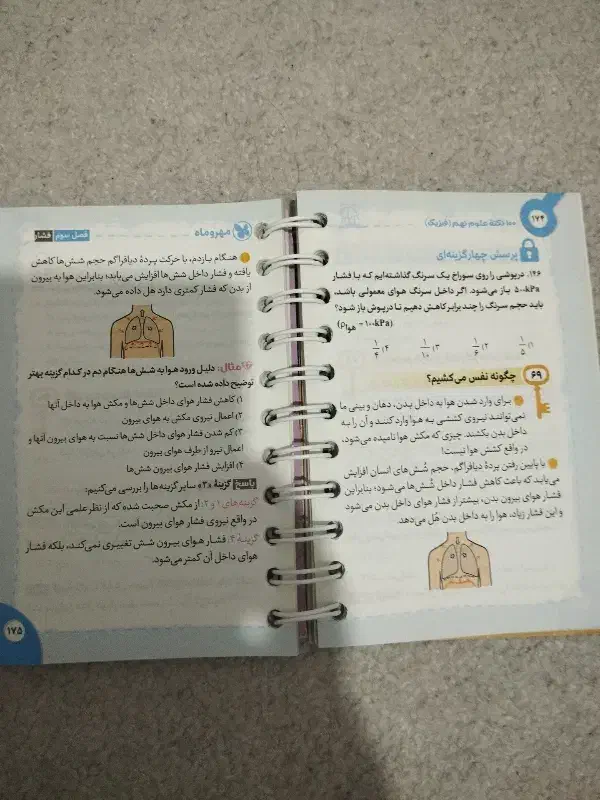 ۱۷۴
۱۰۰ نکتهٔ علوم نهم (فیزیک)
پرسش چهارگزینه‌ای
۱۲۶. درپوشی را روی سوراخ یک سرنگ گذاشته‌ایم که با فشار
۵۰۰kPa باز می‌شود. اگر داخل سرنگ هوای معمولی باشد،
باید حجم سرنگ را چند برابر کاهش دهیم تا درپوش باز شود؟
(Pهوا = ۱۰۰kPa)
۱) ۱/۵ ۲) ۱/۶ ۳) ۱/۱۰ ۴) ۱/۴
۶۹ چگونه نفس می‌کشیم؟
برای وارد شدن هوا به داخل بدن، دهان و بینی ما
نمی‌توانند نیروی کششی به هوا وارد کنند و آن را به
داخل بدن بکشند. چیزی که مکش هوا نامیده می‌شود،
در واقع کشش هوا نیست!
با پایین رفتن پردهٔ دیافراگم، حجم شُش‌های انسان افزایش
می‌یابد که باعث کاهش فشار داخل شُش‌ها می‌شود؛ بنابراین
فشار هوای بیرون بدن، بیشتر از فشار هوای داخل بدن می‌شود
و این فشار زیاد، هوا را به داخل بدن هُل می‌دهد.
مهروماه
فصل سوم فشار
هنگام بازدم، با حرکت پردهٔ دیافراگم حجم شش‌ها کاهش
یافته و فشار داخل شش‌ها افزایش می‌یابد؛ بنابراین هوا به بیرون
از بدن که فشار کمتری دارد هل داده می‌شود.
مثال: دلیل ورود هوا به شش‌ها هنگام دم در کدام گزینه بهتر
توضیح داده شده است؟
۱) کاهش فشار هوای داخل شش‌ها و مکش هوا به داخل آنها
۲) اعمال نیروی مکش به هوای بیرون
۳) کم شدن فشار هوای داخل شش‌ها نسبت به هوای بیرون آنها و
اعمال نیرو از طرف هوای بیرون
۴) افزایش فشار هوای بیرون شش‌ها
پاسخ گزینهٔ «۳» سایر گزینه‌ها را بررسی می‌کنیم:
گزینه‌های ۱ و ۲: از مکش صحبت شده که از نظر علمی این مکش
در واقع نیروی فشار هوای بیرون است.
گزینهٔ ۴: فشار هوای بیرون شش تغییری نمی‌کند، بلکه فشار
هوای داخل آن کمتر می‌شود.
۱۷۵